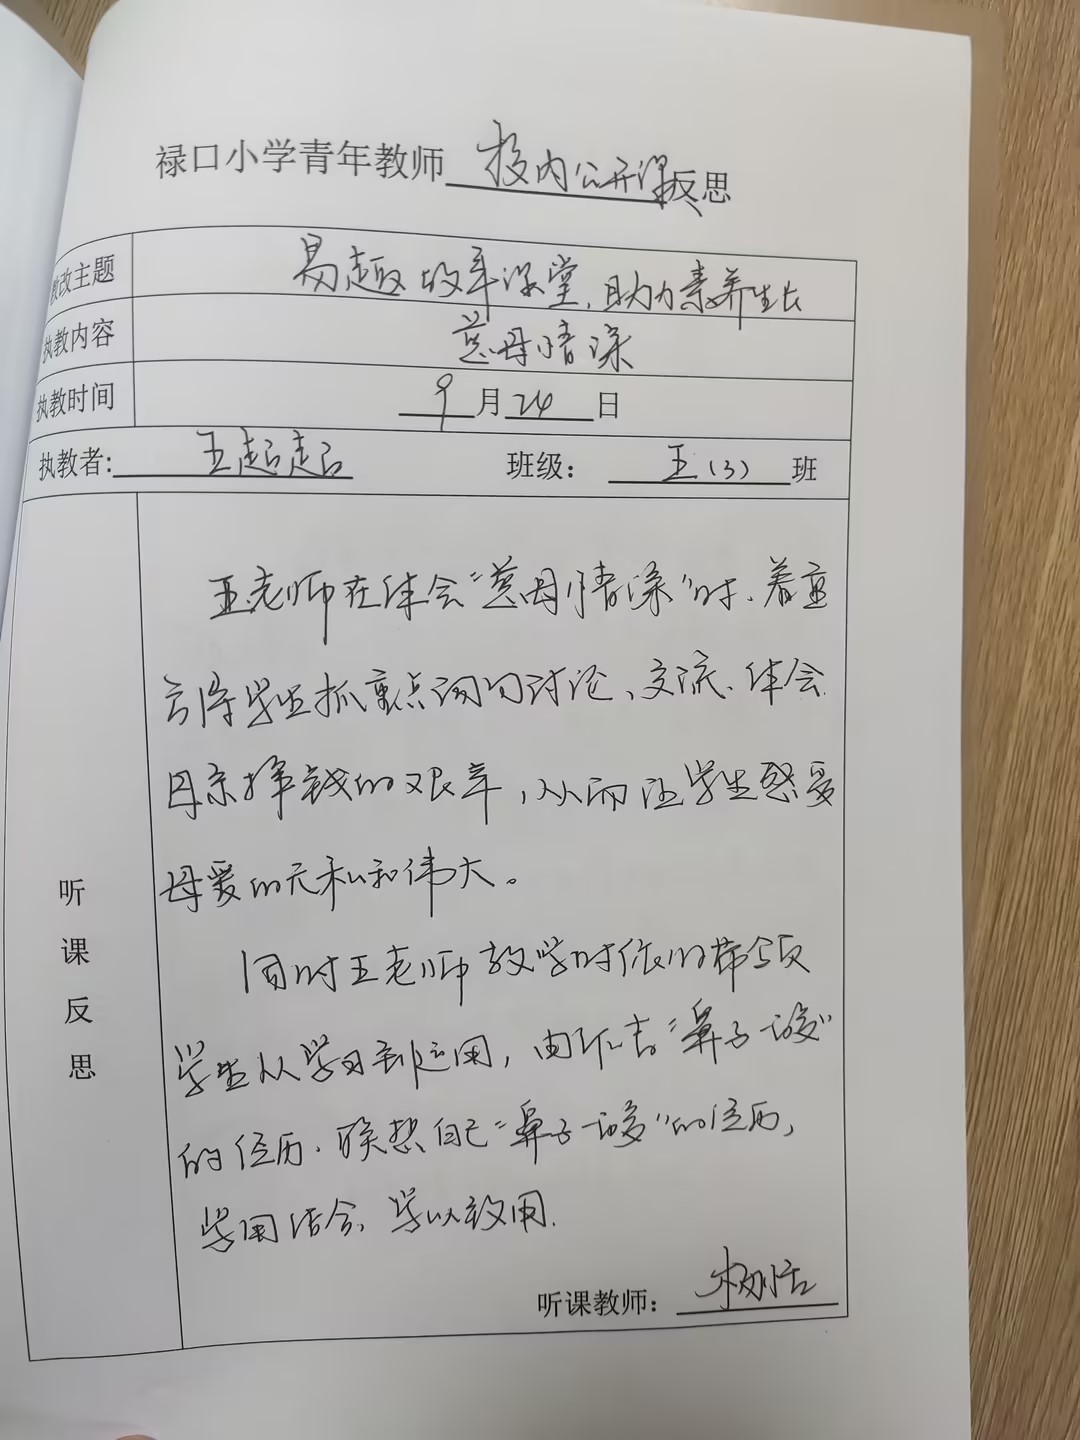 禄口小学青年教师校内公开课反思
教改主题 易趣故事课堂,助力素养生长
执教内容 慈母情深
执教时间 9月24日
执教者: 王超超 班级: 五(3)班
听课反思
王老师在体会“慈母情深”时、着重
引导学生抓重点词句讨论、交流、体会
母亲挣钱的艰辛,从而让学生感受
母爱的无私和伟大。
同时王老师教学时很好的带领
学生从学习到运用,由作者“鼻子一酸”
的经历、联想自己“鼻子一酸”的经历,
学用结合、学以致用.
听课教师: 杨